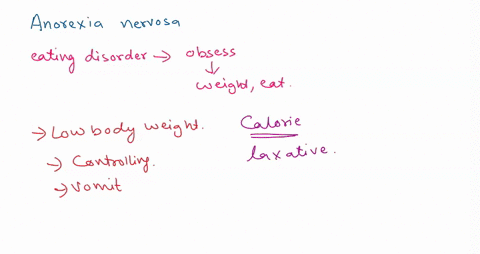 Anorexia nervosa
eating disorder → obsess
↓
weight, eat.
→ Low body weight.
→ Controlling.
→ vomit
Calorie
laxative.